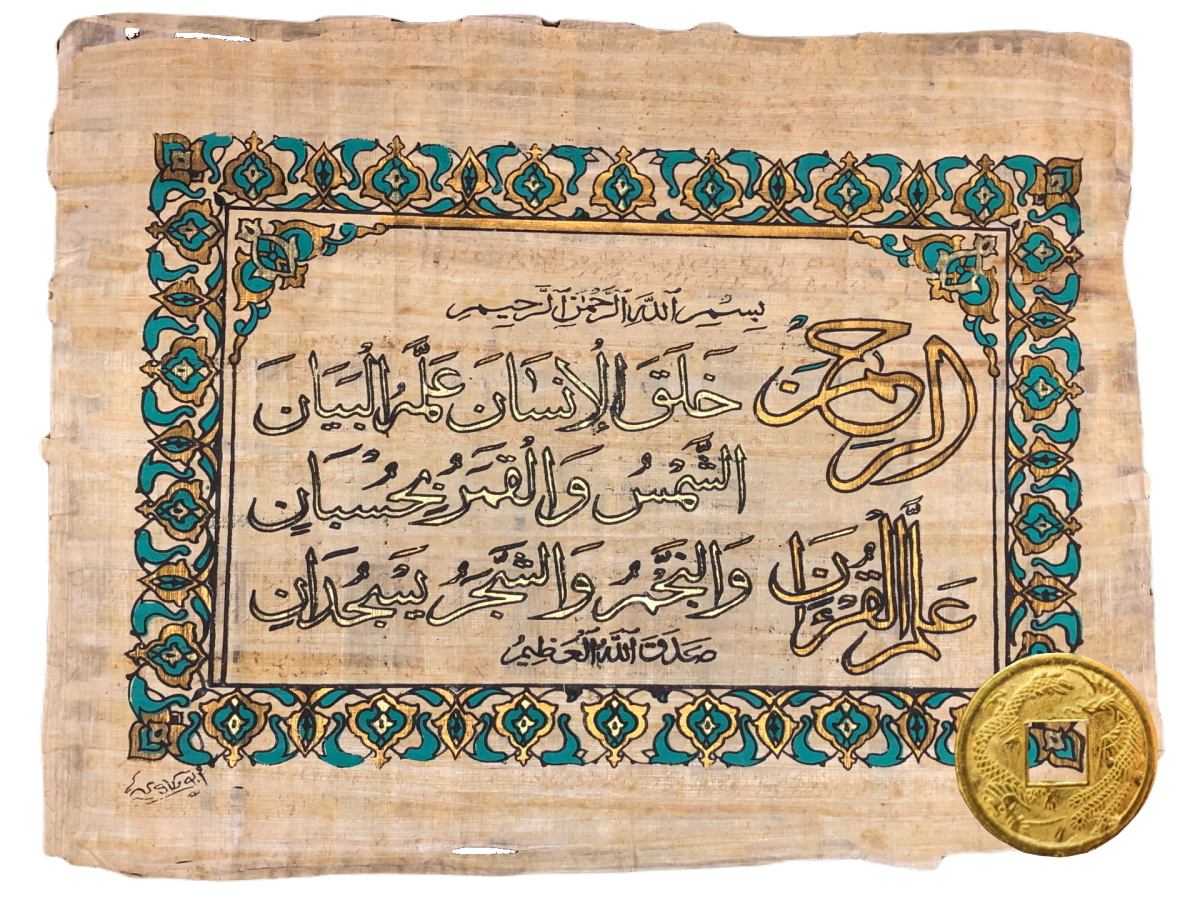 بِسْمِ ٱللَّهِ ٱلرَّحْمَٰنِ ٱلرَّحِيمِ
الرحمن
علم القرءان
خَلَقَ الْإِنسَانَ عَلَّمَهُ الْبَيَانَ
الشَّمْسُ وَالْقَمَرُ بِحُسْبَانٍ
وَالنَّجْمُ وَالشَّجَرُ يَسْجُدَانِ
صَدَقَ ٱللَّهُ ٱلْعَظِيمُ